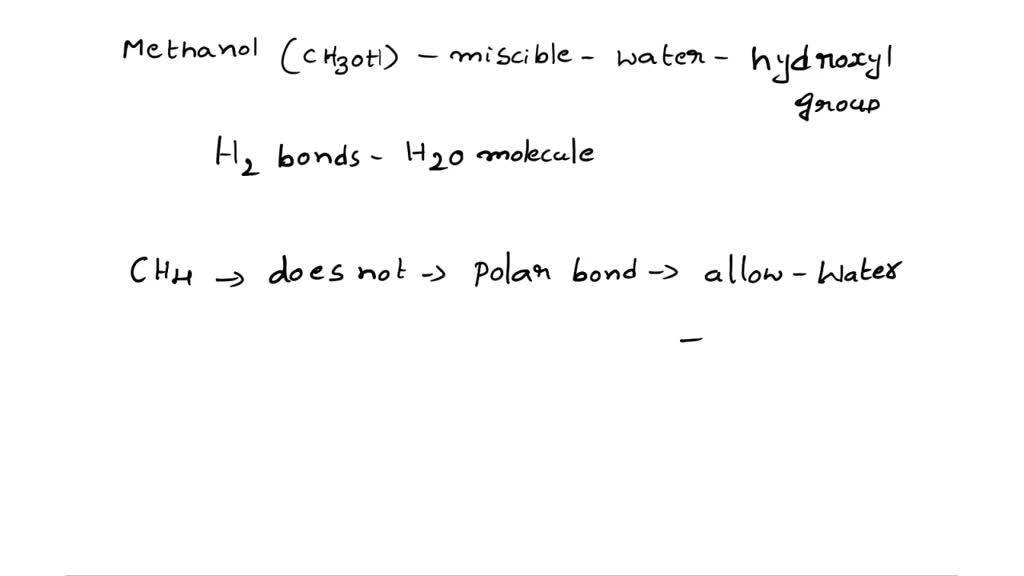 Methanol (CH3OH) - miscible - water - hydroxyl
group
H2 bonds - H2O molecule
CH4 → does not → polar bond → allow - water
-